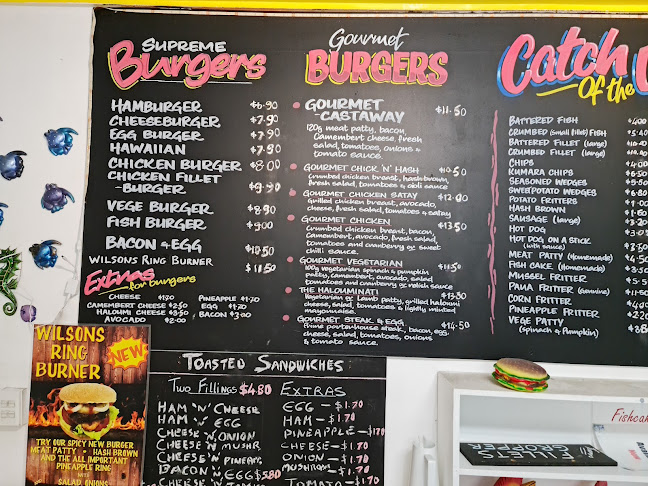 SUPREME
Burgers
HAMBURGER $6.90
CHEESEBURGER $7.90
EGG BURGER $7.90
HAWAIIAN $7.90
CHICKEN BURGER $8.00
CHICKEN FILLET
-BURGER $9.90
VEGE BURGER $8.90
FISH BURGER $9.00
BACON & EGG $10.50
WILSONS RING BURNER $11.50
Extras
for burgers
CHEESE $1.70 PINEAPPLE $1.70
CAMEMBERT CHEESE $2.50 EGG $1.70
HALOUMI CHEESE $3.50 BACON $3.00
AVOCADO $2.00
Gourmet
BURGERS
GOURMET
-CASTAWAY $11.50
120g meat patty, bacon,
Camembert cheese, fresh
salad, tomatoes, onions &
tomato sauce.
GOURMET CHICK 'N' HASH $10.50
Crumbed chicken breast, hash brown,
fresh salad, tomatoes & aioli sauce
GOURMET CHICKEN SATAY $12.00
Grilled chicken breast, avocado,
cheese, fresh salad, tomatoes & satay
GOURMET CHICKEN $13.50
Crumbed chicken breast, bacon,
Camembert, avocado, fresh salad,
tomatoes and cranberry or sweet
chilli sauce.
GOURMET VEGETARIAN $11.50
100g vegetarian spinach & pumpkin
patty, camembert, avocado, salad
tomatoes and cranberry or relish sauce
THE HALOUMINATI $13.50
Vegetarian or Lamb patty, grilled haloumi
cheese, salad, tomatoes & lightly minted
mayonnaise.
GOURMET STEAK & EGG $14.50
Prime porterhouse steak, bacon, egg,
cheese, salad, tomatoes, onions
& tomato sauce.
Catch
Of the
BATTERED FISH
CRUMBED (small fillet) FISH
BATTERED FILLET (large)
CRUMBED FILLET (large)
CHIPS
KUMARA CHIPS
SEASONED WEDGES
SWEETPOTATO WEDGES
POTATO FRITTERS
HASH BROWN
SAUSAGE (large)
HOT DOG
HOT DOG ON A STICK
(with sauce)
MEAT PATTY (Homemade)
FISH CAKE (Homemade)
MUSSEL FRITTER
PAUA FRITTER (genuine)
CORN FRITTER
PINEAPPLE FRITTER
VEGE PATTY
(Spinach & Pumpkin)
WILSONS
RING
BURNER
NEW
TRY OUR SPICY NEW BURGER
MEAT PATTY • HASH BROWN
AND THE ALL IMPORTANT
PINEAPPLE RING
WITH
SALAD, ONIONS
TOASTED SANDWICHES
TWO FILLINGS $4.80
HAM 'N' CHEESE
HAM 'N' EGG
CHEESE 'N' ONION
CHEESE 'N' MUSHR
CHEESE 'N' PINEAPL
BACON 'N' EGG $5.80
CHEESE 'N' TOMATO
EXTRAS
EGG - $1.70
HAM - $1.70
PINEAPPLE - $1.70
CHEESE - $1.70
ONION - $1.70
MUSHROOM - $1.70
TOMATO - $1.70
Fishcak
FILLETS